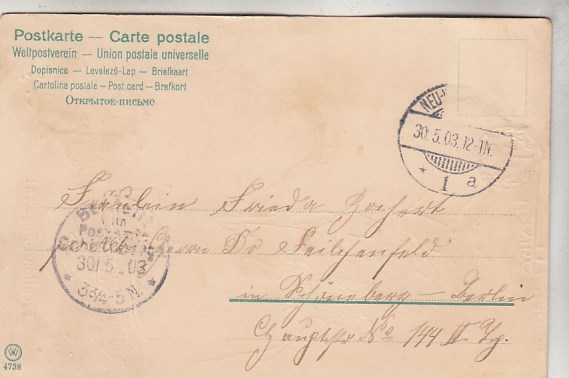 Postkarte — Carte postale
Weltpostverein — Union postale universelle
Dopisnica — Levelező-Lap — Briefkaart
Cartolina postale — Post card — Brefkort
Открытое-письмо
NEU-
30.5.03.12-1N.
* 1 a
Fräulein Frieda Zochert
Herrn Dr Feilchenfeld
in Schöneberg — Berlin
Hauptstr No 144 II Tr.
Bestellt
30/5 03
3¾-5 N.
W
4738